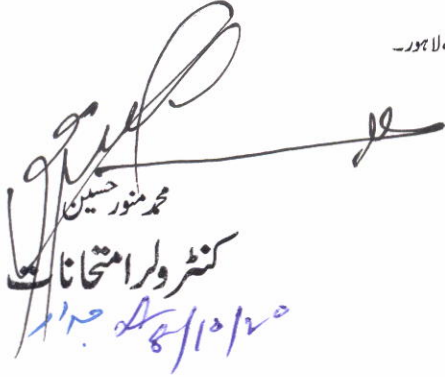 لاہور۔
محمد منور حسین
کنٹرولر امتحانات
8/10/20